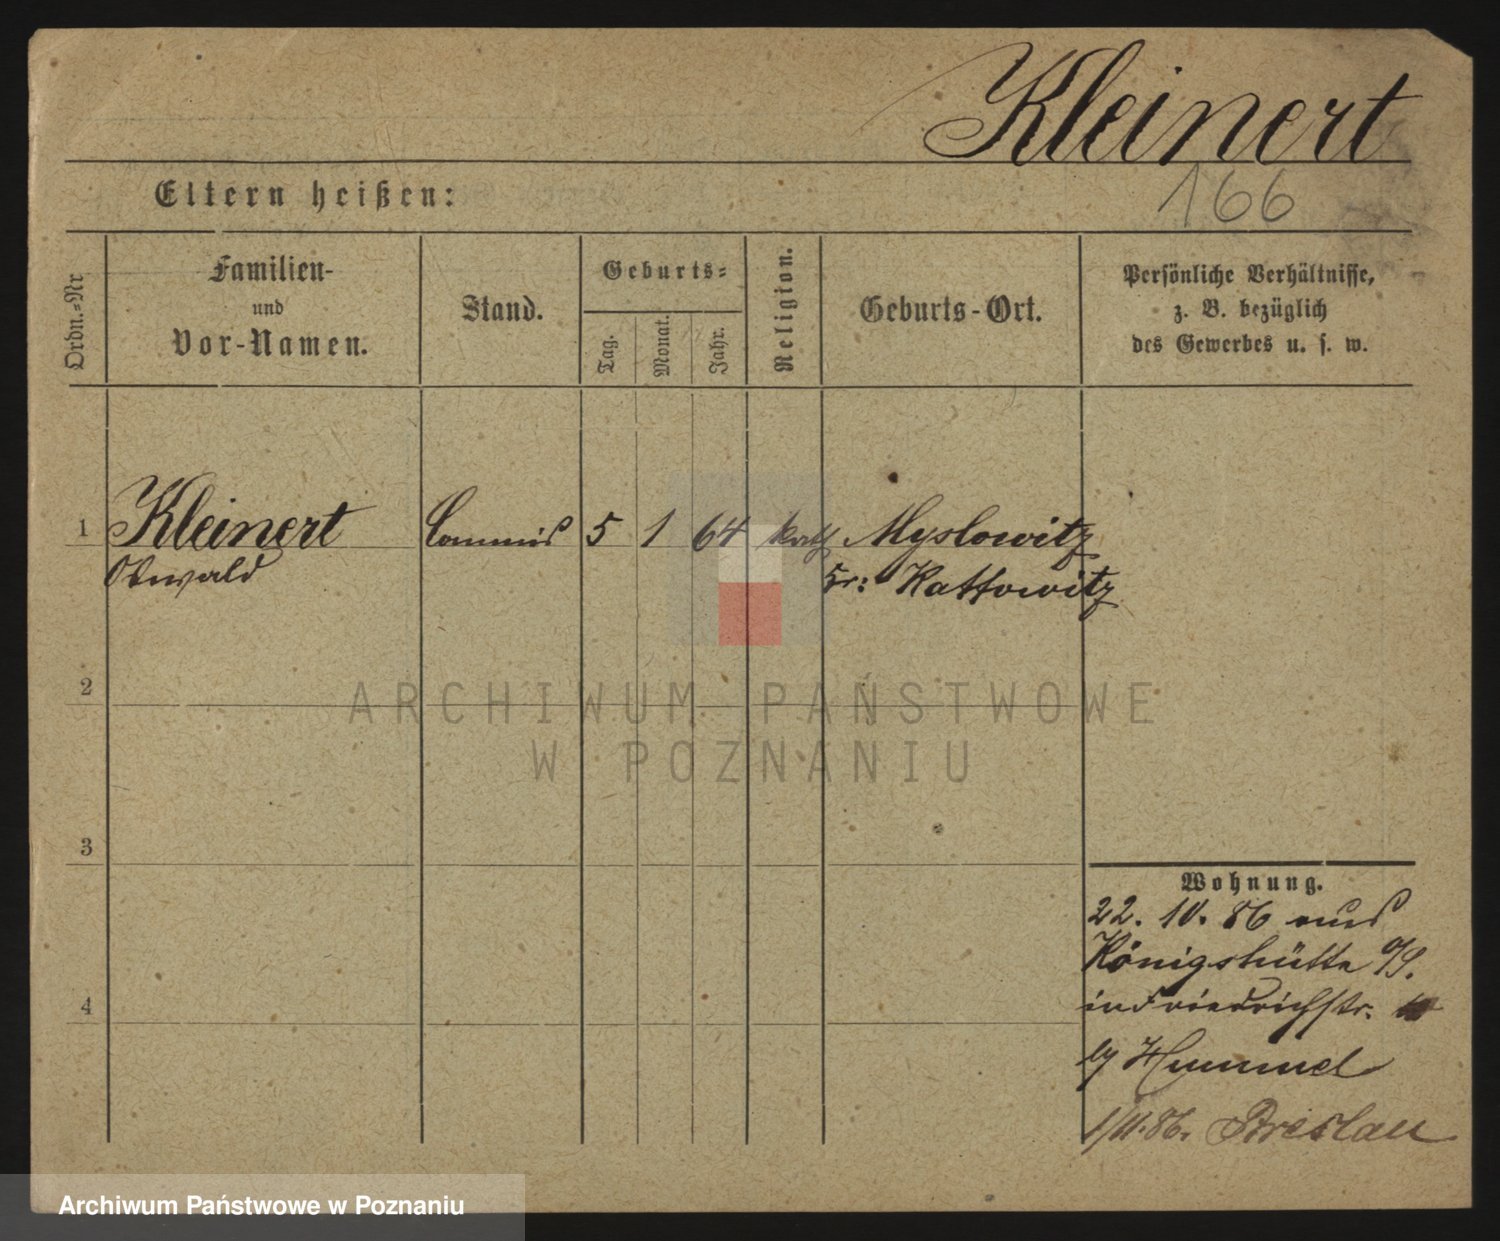 Kleinert
166
Eltern heißen:
Ordn.=Nr
Familien-
und
Vor-Namen.
Stand.
Geburts=
Tag.
Monat.
Jahr.
Religion.
Geburts-Ort.
Persönliche Verhältnisse,
z. B. bezüglich
des Gewerbes u. s. w.
1 Kleinert Commis 5 1 64 kath Myslowitz
Oswald Kr: Kattowitz
2
3
4
Wohnung.
22. 10. 86 aus
Königshütte O/S.
in Friedrichstr.
by Hummel
1/11.86. Breslau
ARCHIWUM PAŃSTWOWE
W POZNANIU
Archiwum Państwowe w Poznaniu